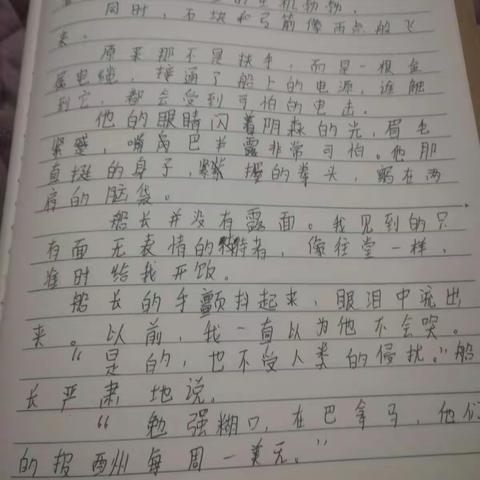 同时，石块和弓箭像雨点般飞
来。
原来那不是扶手，而是一根金
属电缆，接通了船上的电源，谁触
到它，都会受到可怕的电击。
他的眼睛闪着阴森的光，眉毛
紧蹙，嘴巴半露非常可怕。他那
直挺的身子，紧握的拳头，缩在两
肩的脑袋。
船长并没有露面。我见到的只
有面无表情的侍者，像往常一样，
准时给我开饭。
船长的手颤抖起来，眼泪中流出
来。以前，我一直以为他不会哭。
“是的，也不受人类的侵扰。”船
长严肃地说。
“勉强糊口，在巴拿马，他们
的报酬每周一美元。”